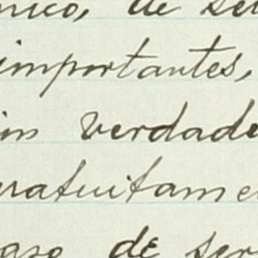 nico, de se
importantes,
in verdade
ratuitame
aso de ser